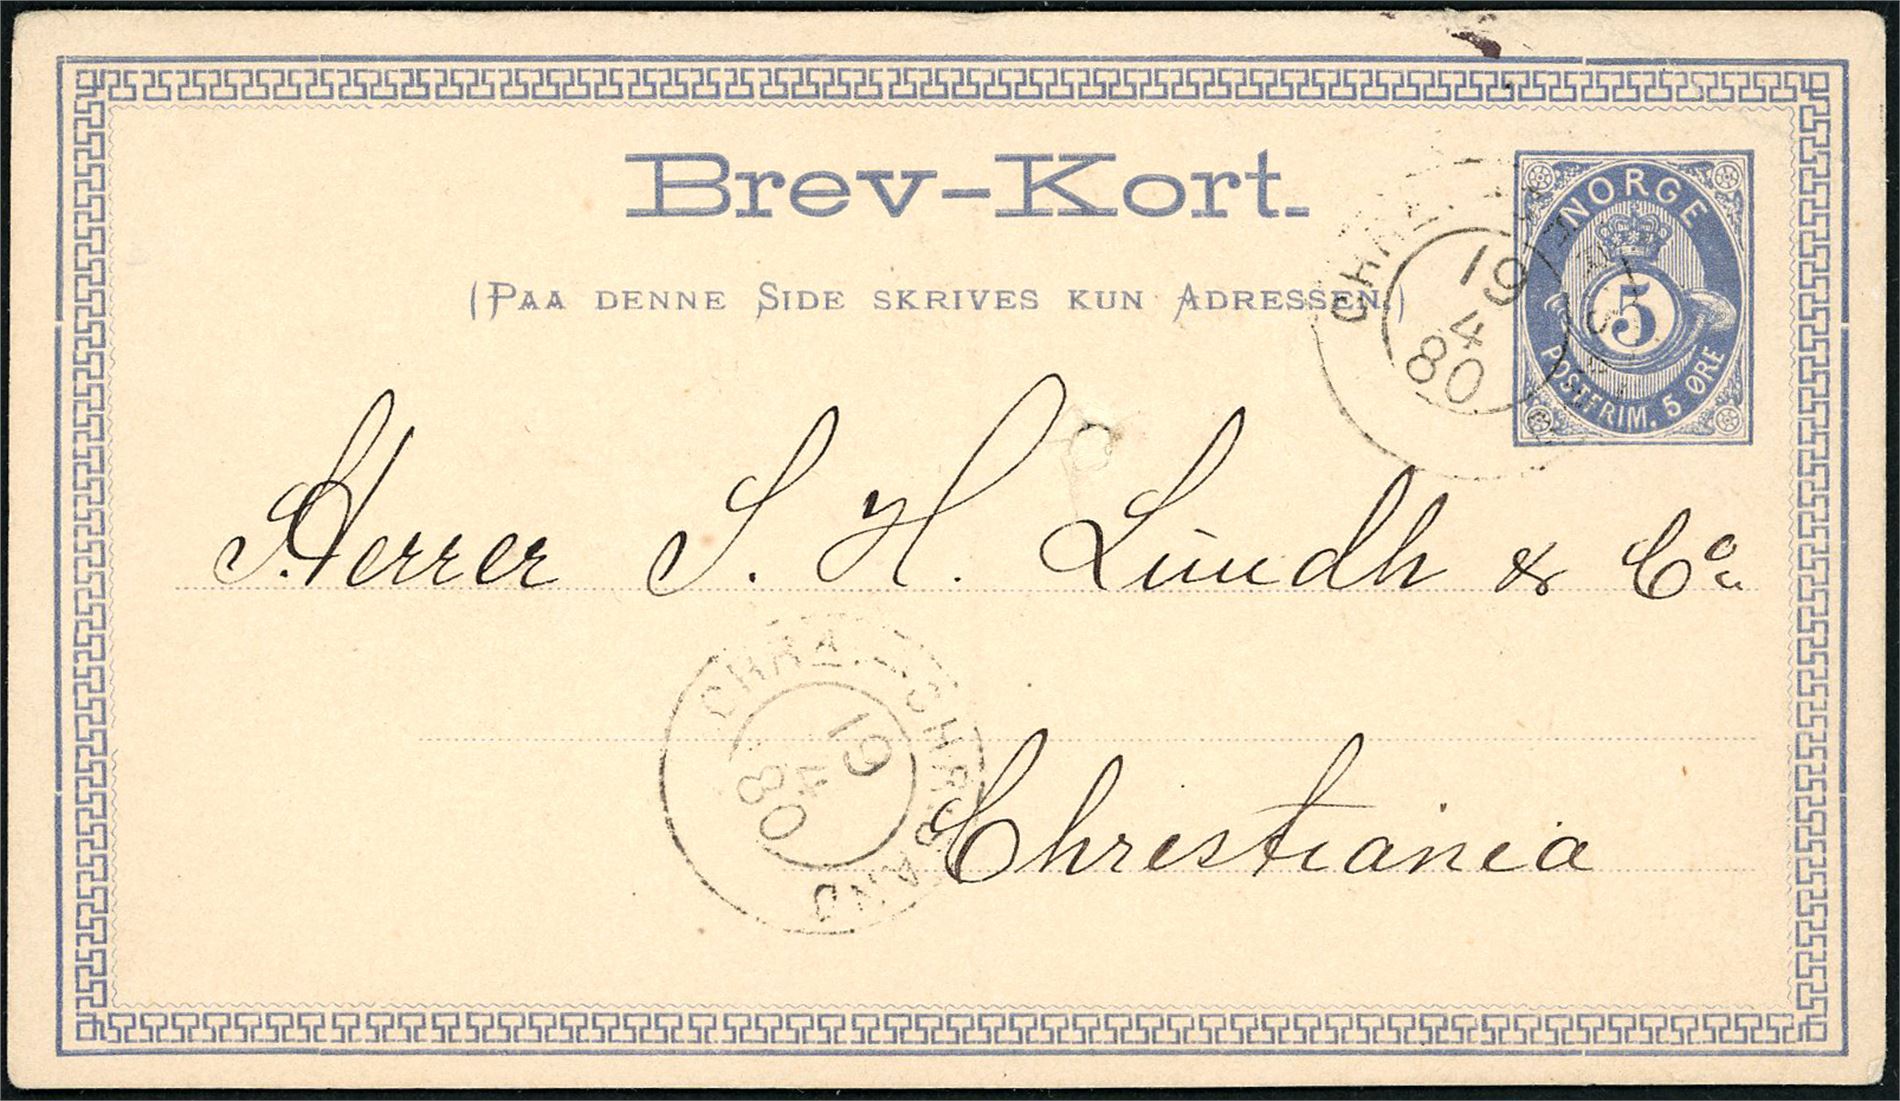 Brev-Kort.
(PAA DENNE SIDE SKRIVES KUN ADRESSEN.)
NORGE
5
POSTFRIM. 5 ØRE
19
4
80
Herrer S. H. Lundh & Co.
CHRA.-CHRSAND
19
4
80
Chrestiania